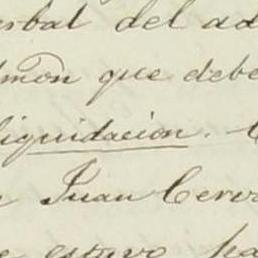 rbal del ad
món que debe
liquidacion.
Juan Cerv
e estuvo pa